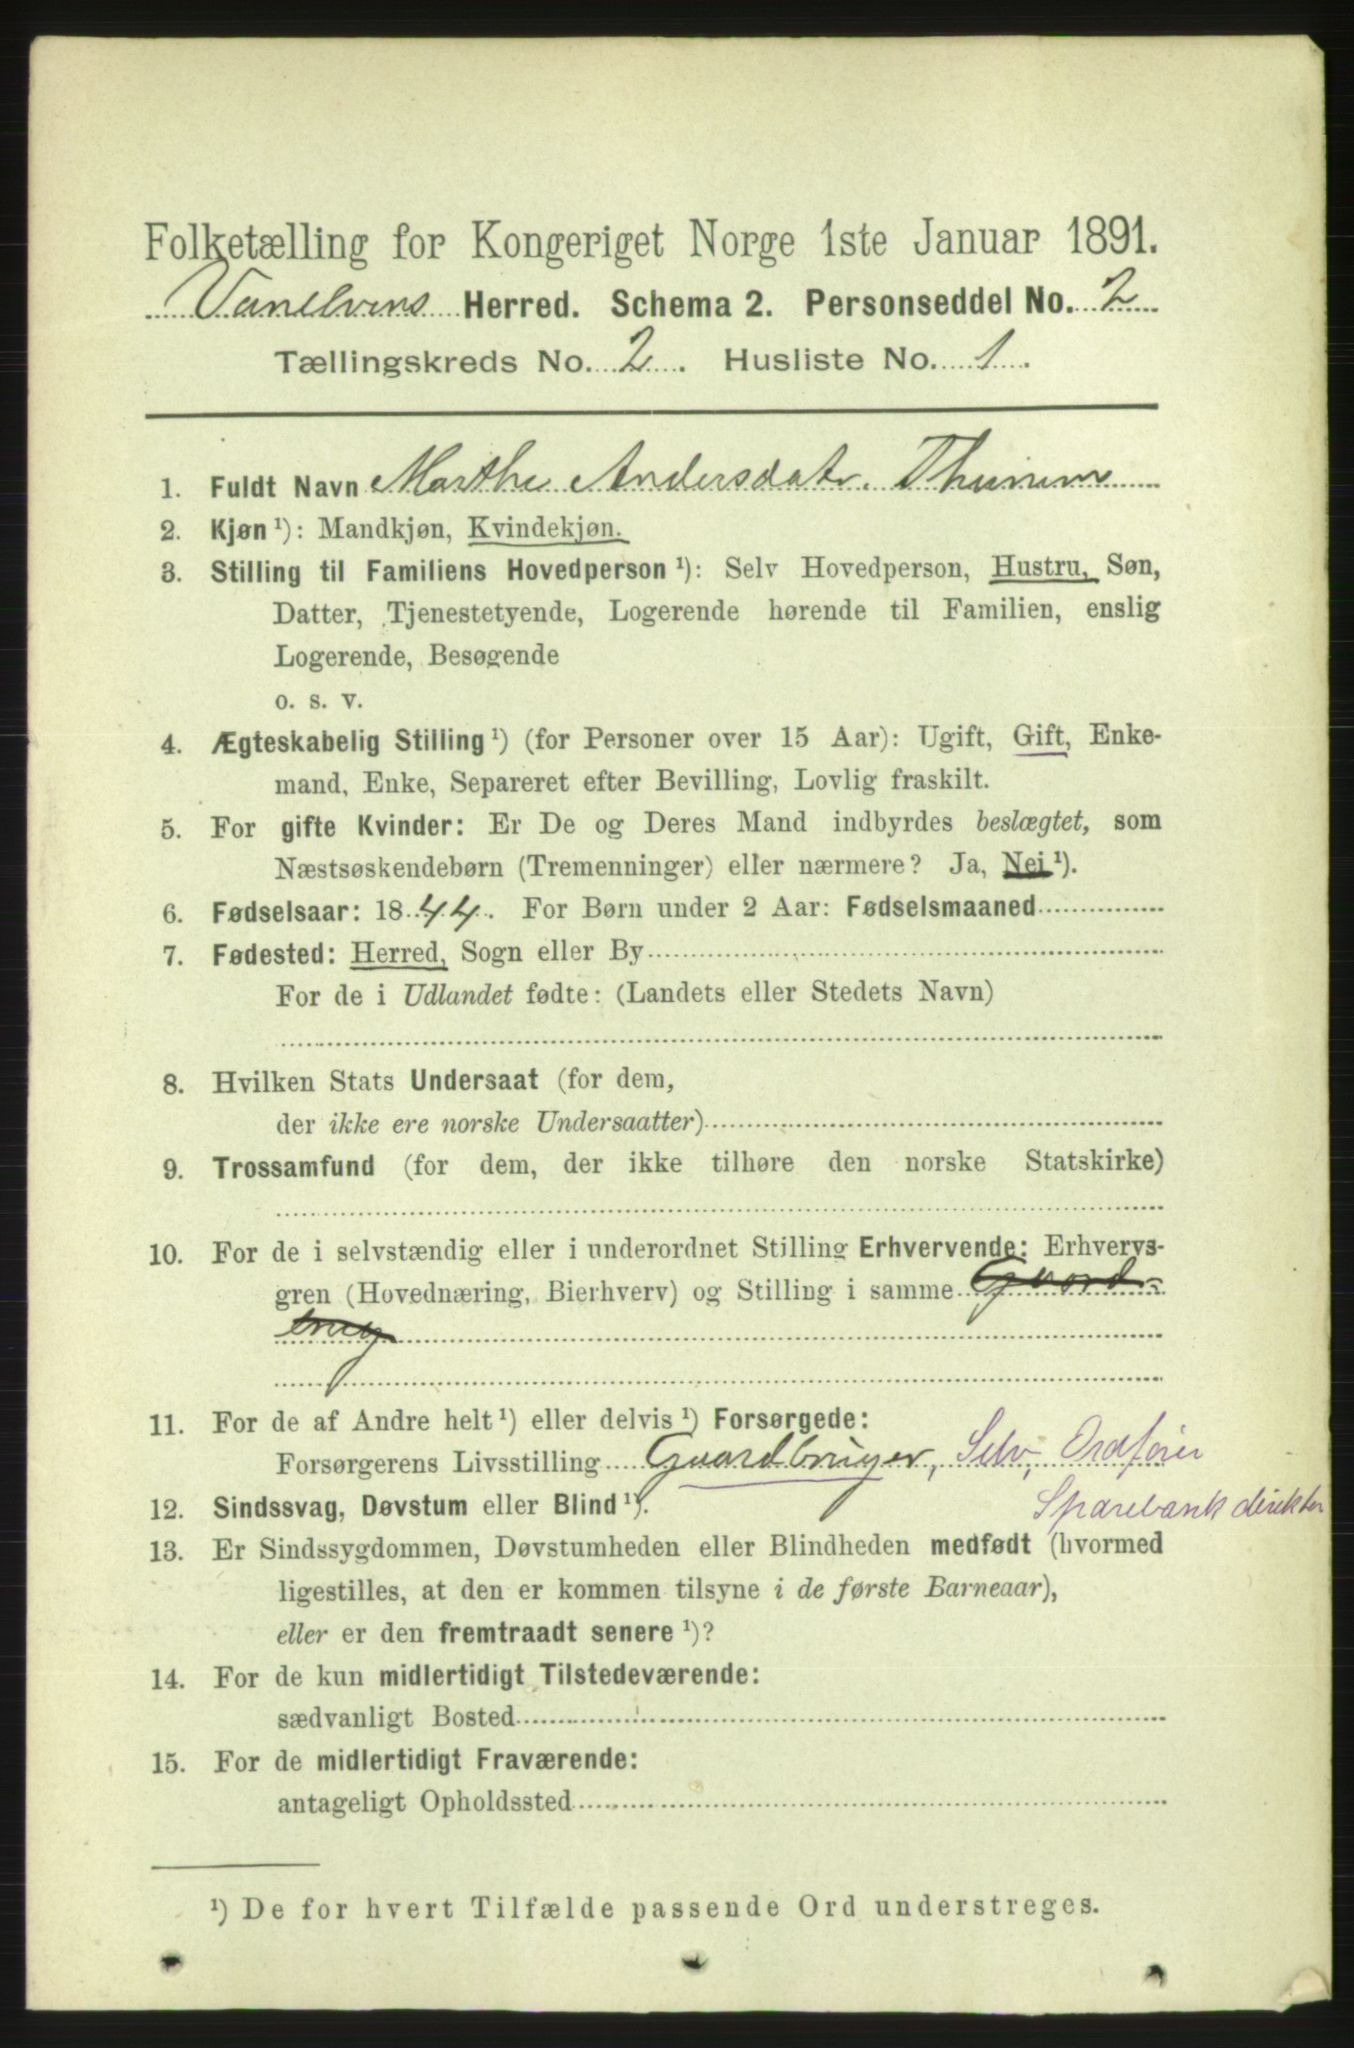 Folketælling for Kongeriget Norge 1ste Januar 1891.
Vanelvens Herred. Schema 2. Personseddel No. 2
Tællingskreds No. 2. Husliste No. 1.
1. Fuldt Navn Marthe Andersdatr. Thunem
2. Kjøn ¹): Mandkjøn, Kvindekjøn.
3. Stilling til Familiens Hovedperson ¹): Selv Hovedperson, Hustru, Søn,
Datter, Tjenestetyende, Logerende hørende til Familien, enslig
Logerende, Besøgende
o. s. v.
4. Ægteskabelig Stilling ¹) (for Personer over 15 Aar): Ugift, Gift, Enke-
mand, Enke, Separeret efter Bevilling, Lovlig fraskilt.
5. For gifte Kvinder: Er De og Deres Mand indbyrdes beslægtet, som
Næstsøskendebørn (Tremenninger) eller nærmere? Ja, Nei ¹).
6. Fødselsaar: 1844. For Børn under 2 Aar: Fødselsmaaned
7. Fødested: Herred, Sogn eller By
For de i Udlandet fødte: (Landets eller Stedets Navn)
8. Hvilken Stats Undersaat (for dem,
der ikke ere norske Undersaatter)
9. Trossamfund (for dem, der ikke tilhøre den norske Statskirke)
10. For de i selvstændig eller i underordnet Stilling Erhvervende: Erhvervs-
gren (Hovednæring, Bierhverv) og Stilling i samme Gaard-
brug
11. For de af Andre helt ¹) eller delvis ¹) Forsørgede:
Forsørgerens Livsstilling Gaardbruger, Selv, Ordfører
Sparebank direktør
12. Sindssvag, Døvstum eller Blind ¹).
13. Er Sindssygdommen, Døvstumheden eller Blindheden medfødt (hvormed
ligestilles, at den er kommen tilsyne i de første Barneaar),
eller er den fremtraadt senere ¹)?
14. For de kun midlertidigt Tilstedeværende:
sædvanligt Bosted
15. For de midlertidigt Fraværende:
antageligt Opholdssted
¹) De for hvert Tilfælde passende Ord understreges.